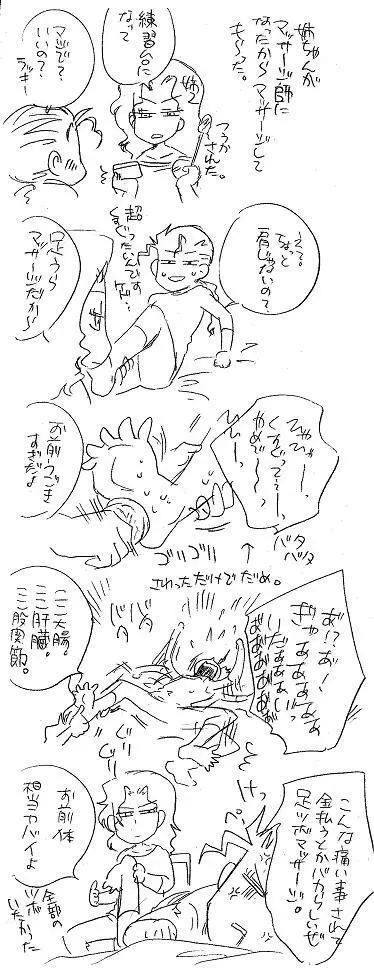 姉ちゃんが
マッサージ師に
なったからマッサージして
もらった。
練習台に
なって
姉→
マジで?
いいの?
ラッキー
された。
えっ。
ちょっと
肩じゃないの?
超
くすぐったいんです
けど…
足つぼ
マッサージだから
ひゃひゃーっ、
くすぐってぇーっ、
やめでーっ、
ひーーっ、
お前うごき
すぎだよ
バタ
バタ
ゴリゴリ
↑
さわっただけでだめ。
あ!?あ!
ぎゃああああ
いだぁぁぁい
ああああああ
バ
タ
バ
タ
ここ大腸。
ここ肝臓。
ここ股関節。
こんな痛い事されて
金払うとかバカらしいぜ
足ツボマッサージ。
けっ
お前体
相当ヤバイよ
全部の
ツボ
いたかった